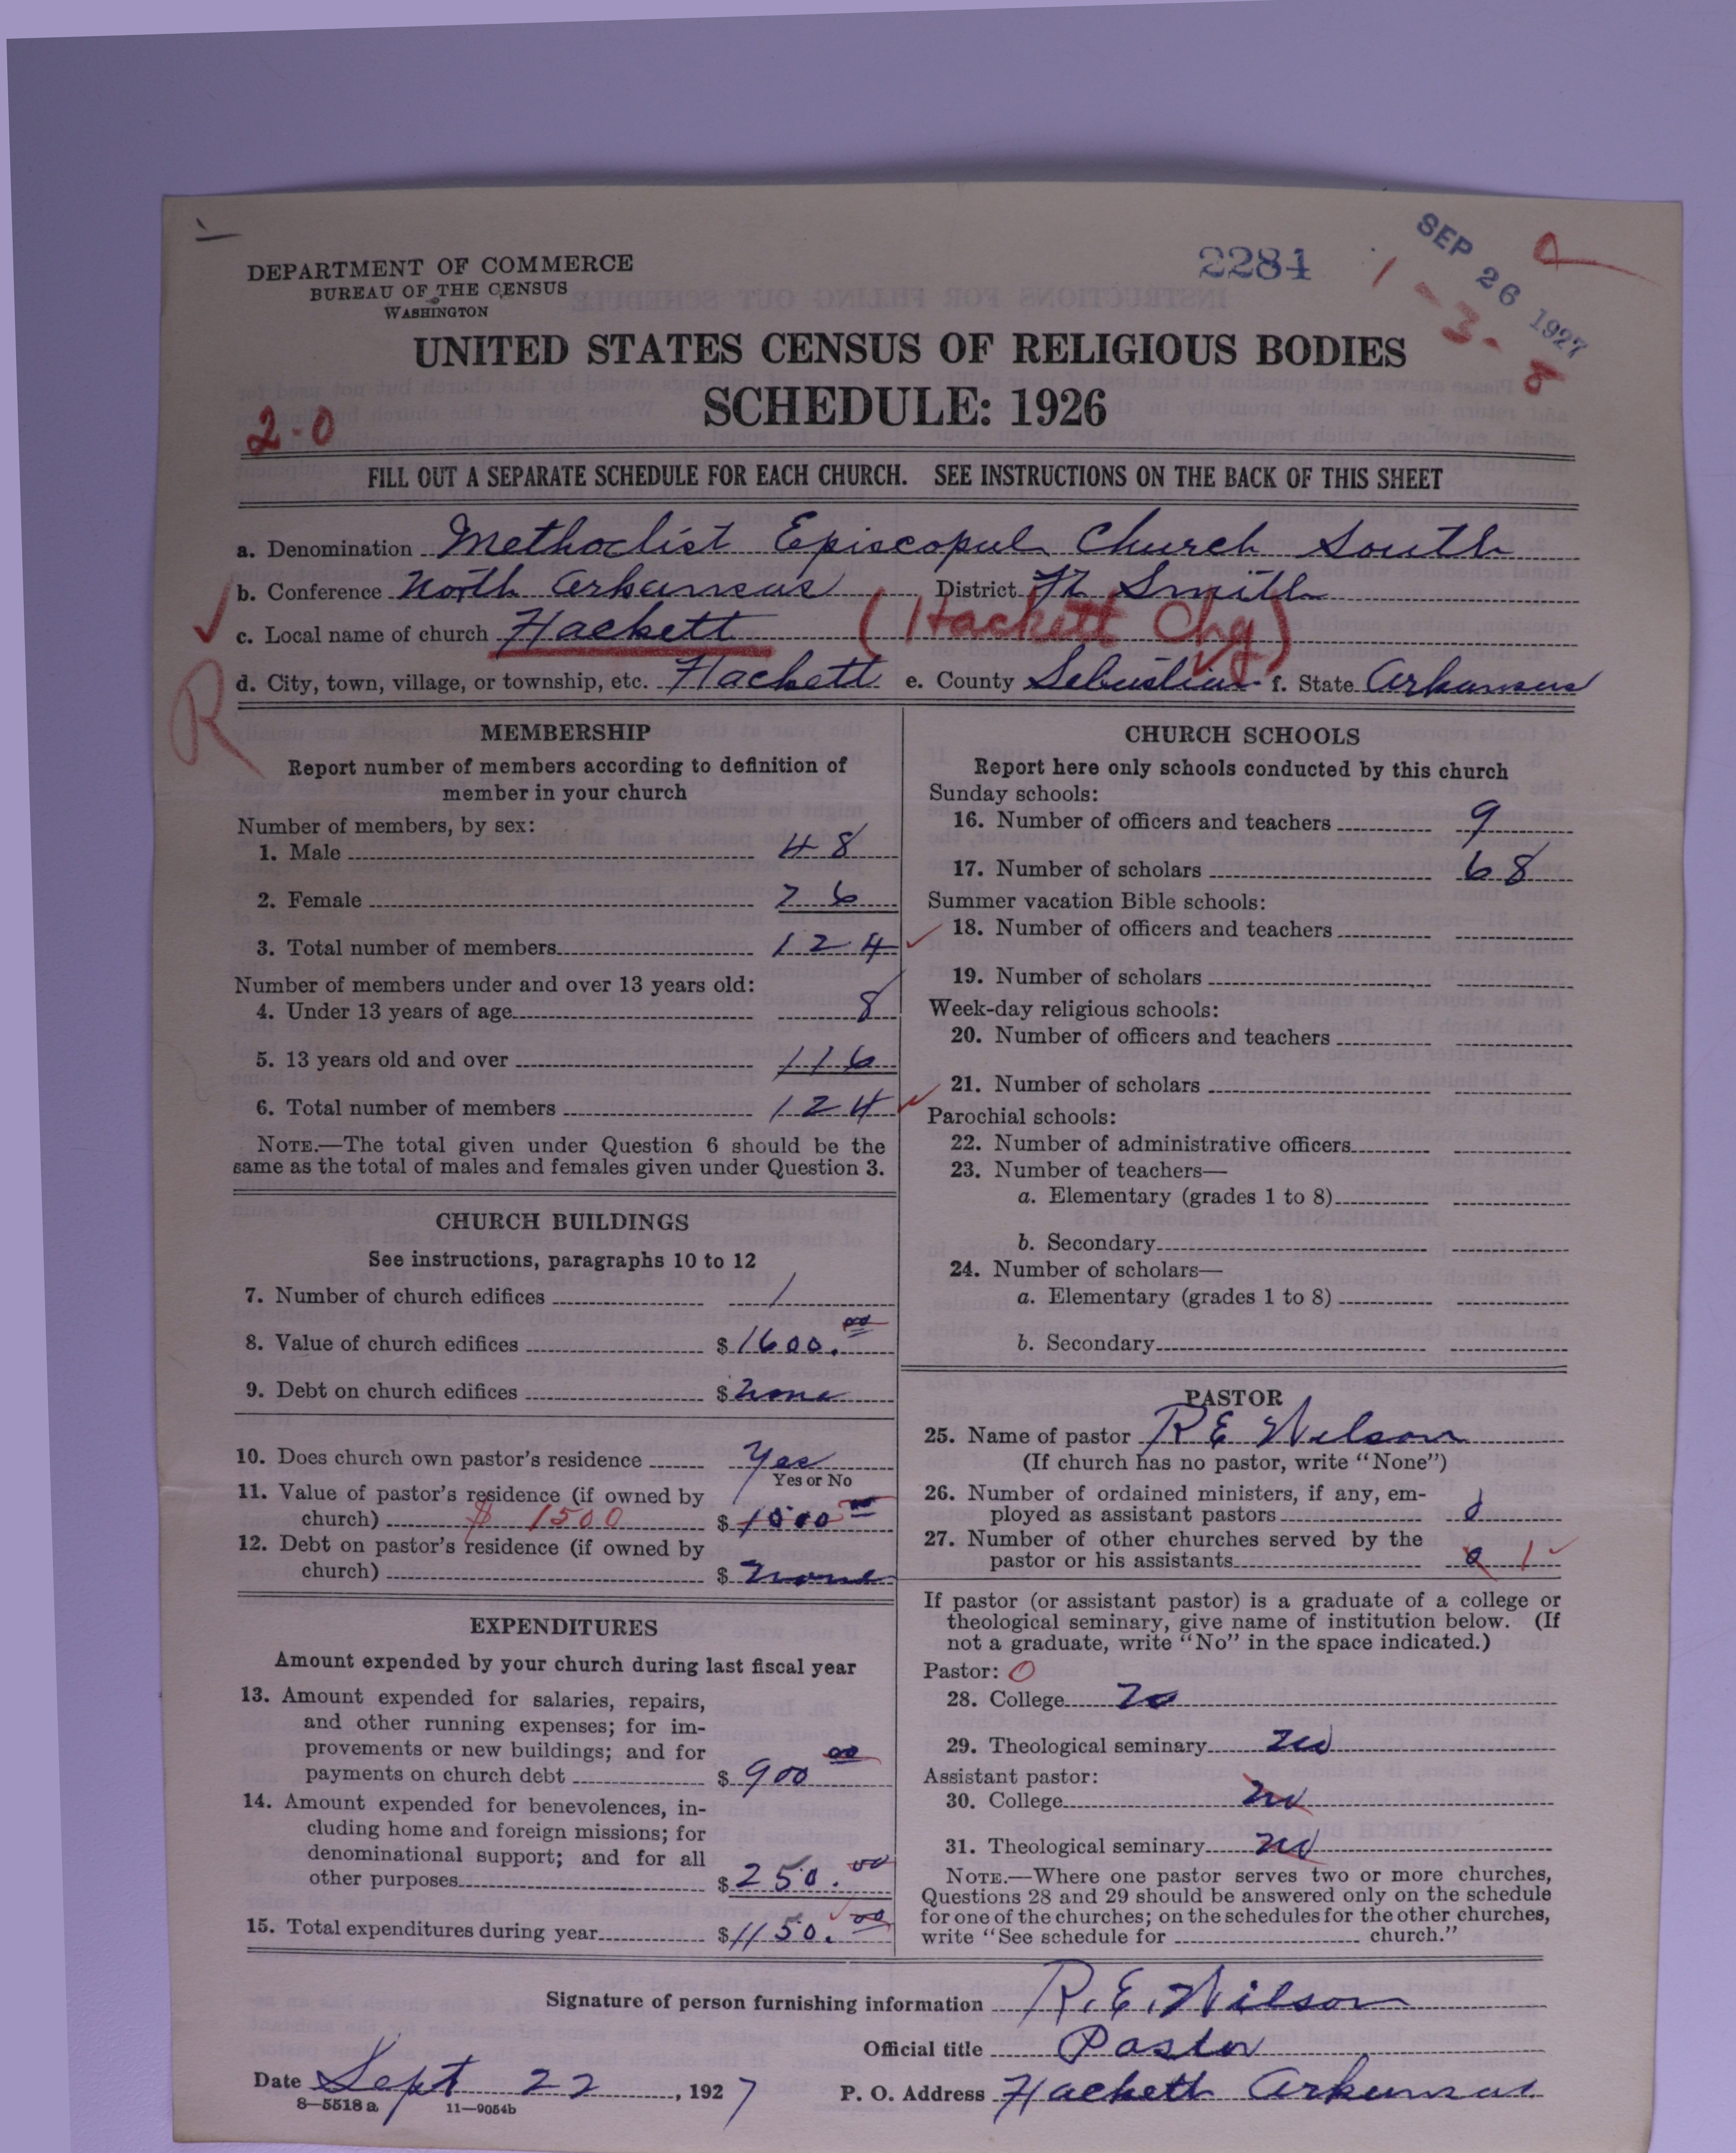 DEPARTMENT OF COMMERCE
BUREAU OF THE CENSUS
WASHINGTON
2284
SEP 26 1927
1 - 3 - 8
UNITED STATES CENSUS OF RELIGIOUS BODIES
SCHEDULE: 1926
2-0
FILL OUT A SEPARATE SCHEDULE FOR EACH CHURCH. SEE INSTRUCTIONS ON THE BACK OF THIS SHEET
a. Denomination Methodist Episcopal Church South
b. Conference North Arkansas District Ft Smith
c. Local name of church Hackett (Hackett Chg)
d. City, town, village, or township, etc. Hackett e. County Sebastian f. State Arkansas
R
MEMBERSHIP
Report number of members according to definition of
member in your church
Number of members, by sex:
1. Male 48
2. Female 76
3. Total number of members 124
Number of members under and over 13 years old:
4. Under 13 years of age 8
5. 13 years old and over 116
6. Total number of members 124
NOTE.—The total given under Question 6 should be the
same as the total of males and females given under Question 3.
CHURCH BUILDINGS
See instructions, paragraphs 10 to 12
7. Number of church edifices 1
8. Value of church edifices $1600.00
9. Debt on church edifices $ none
10. Does church own pastor's residence Yes
Yes or No
11. Value of pastor's residence (if owned by
church) $ 1500 $
12. Debt on pastor's residence (if owned by
church) $ none
EXPENDITURES
Amount expended by your church during last fiscal year
13. Amount expended for salaries, repairs,
and other running expenses; for im-
provements or new buildings; and for
payments on church debt $ 900 00
14. Amount expended for benevolences, in-
cluding home and foreign missions; for
denominational support; and for all
other purposes $250.00
15. Total expenditures during year $1150.00
CHURCH SCHOOLS
Report here only schools conducted by this church
Sunday schools:
16. Number of officers and teachers 9
17. Number of scholars 68
Summer vacation Bible schools:
18. Number of officers and teachers
19. Number of scholars
Week-day religious schools:
20. Number of officers and teachers
21. Number of scholars
Parochial schools:
22. Number of administrative officers
23. Number of teachers—
a. Elementary (grades 1 to 8)
b. Secondary
24. Number of scholars—
a. Elementary (grades 1 to 8)
b. Secondary
PASTOR
25. Name of pastor R E Wilson
(If church has no pastor, write "None")
26. Number of ordained ministers, if any, em-
ployed as assistant pastors 0
27. Number of other churches served by the
pastor or his assistants 0 1
If pastor (or assistant pastor) is a graduate of a college or
theological seminary, give name of institution below. (If
not a graduate, write "No" in the space indicated.)
Pastor: 0
28. College No
29. Theological seminary No
Assistant pastor:
30. College No
31. Theological seminary No
NOTE.—Where one pastor serves two or more churches,
Questions 28 and 29 should be answered only on the schedule
for one of the churches; on the schedules for the other churches,
write "See schedule for church."
Signature of person furnishing information R. E. Wilson
Official title Pastor
Date Sept 22, 1927 P. O. Address Hackett Arkansas
8—5518 a 11—9054b